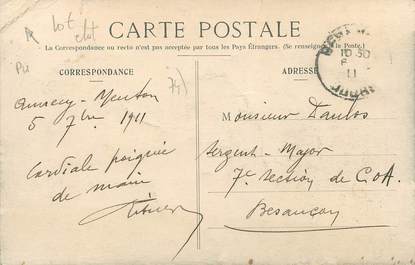 Lot
CARTE POSTALE
La Correspondance au recto n'est pas acceptée par tous les Pays Étrangers. (Se renseigner à la Poste.)
CORRESPONDANCE
ADRESSE
Annecy - Menton
5 7bre 1911
Cordiale poignée
de main
Monsieur Danlos
Sergent - Major
7e Section de C.O.A.
Besançon